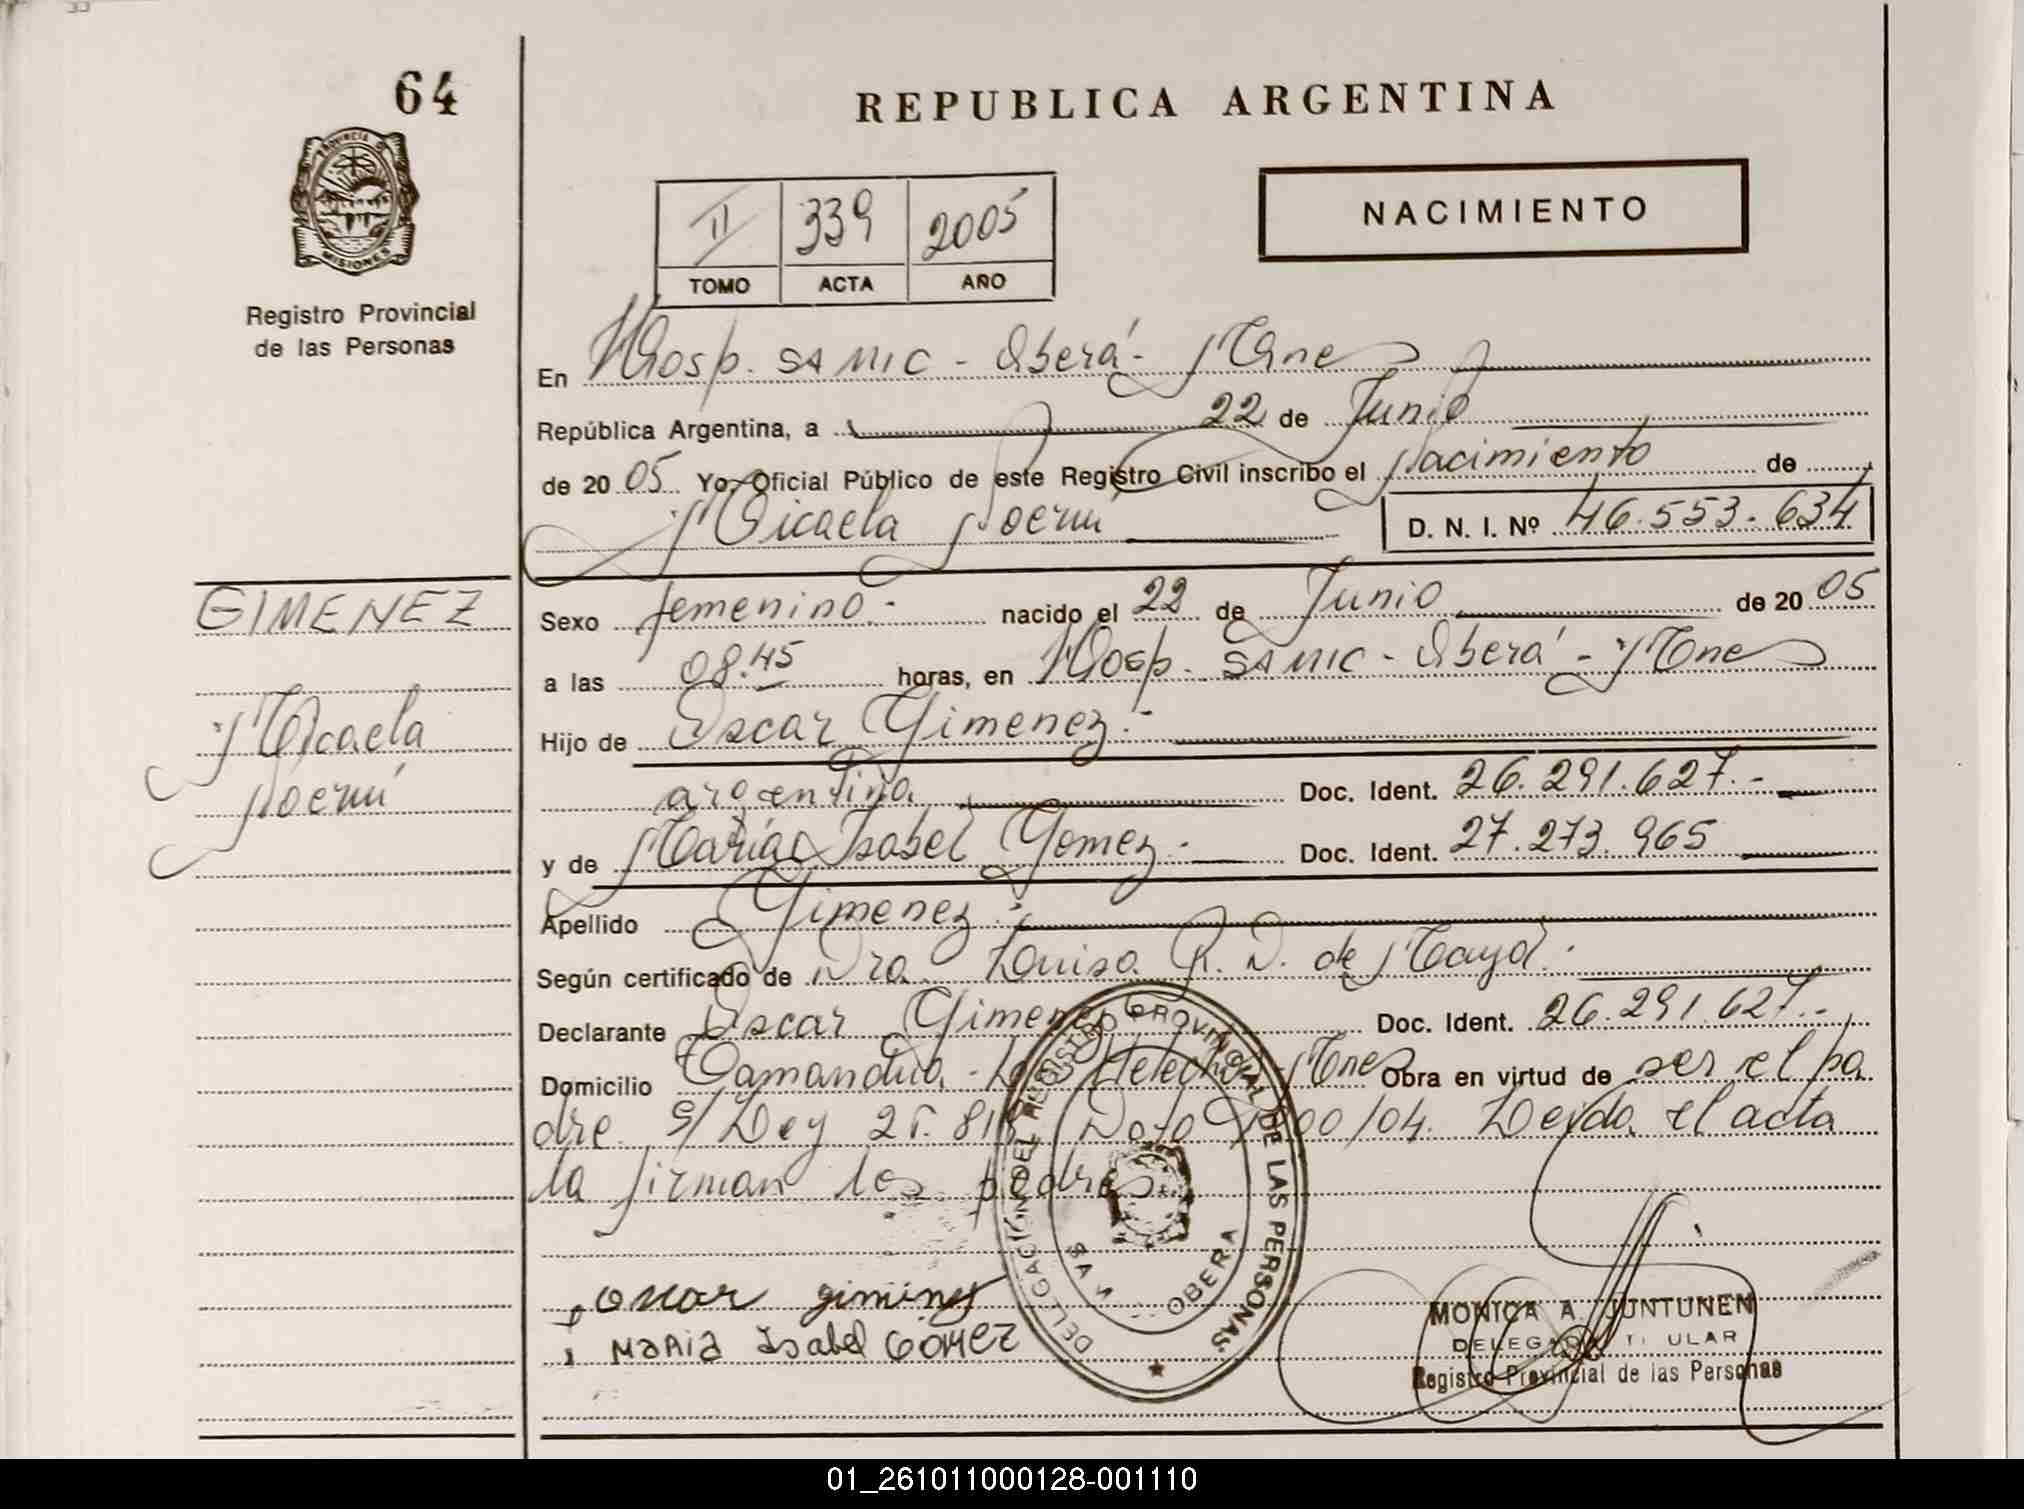 64
REPUBLICA ARGENTINA
PROVINCIA DE
MISIONES
Registro Provincial
de las Personas
II 339 2005
TOMO ACTA AÑO
NACIMIENTO
En Hosp. SAMIC - Oberá - Mnes
República Argentina, a 22 de Junio
de 2005 Yo, Oficial Público de este Registro Civil inscribo el Nacimiento de
Micaela Noemí D. N. I. Nº 46.553.634
GIMENEZ
Micaela
Noemí
Sexo femenino.- nacido el 22 de Junio de 2005
a las 08.45 horas, en Hosp. SAMIC - Oberá - Mnes
Hijo de Oscar Gimenez.-
argentina Doc. Ident. 26.291.627.-
y de María Isabel Gomez.- Doc. Ident. 27.273.965
Apellido Gimenez.-
Según certificado de Dra. Luisa R. D. de
Declarante Oscar Gimenez Doc. Ident. 26.291.627.-
Domicilio Mnes Obra en virtud de ser el pa
dre s/Ley /04. Leida el acta
la firman los padres
DELEGACIÓN DEL REGISTRO PROVINCIAL DE LAS PERSONAS
OBERA
oscar gimenez
MARIA Isabel GOMEZ
MONICA A. JUNTUNEN
DELEGADA TITULAR
Registro Provincial de las Personas
01_261011000128-001110